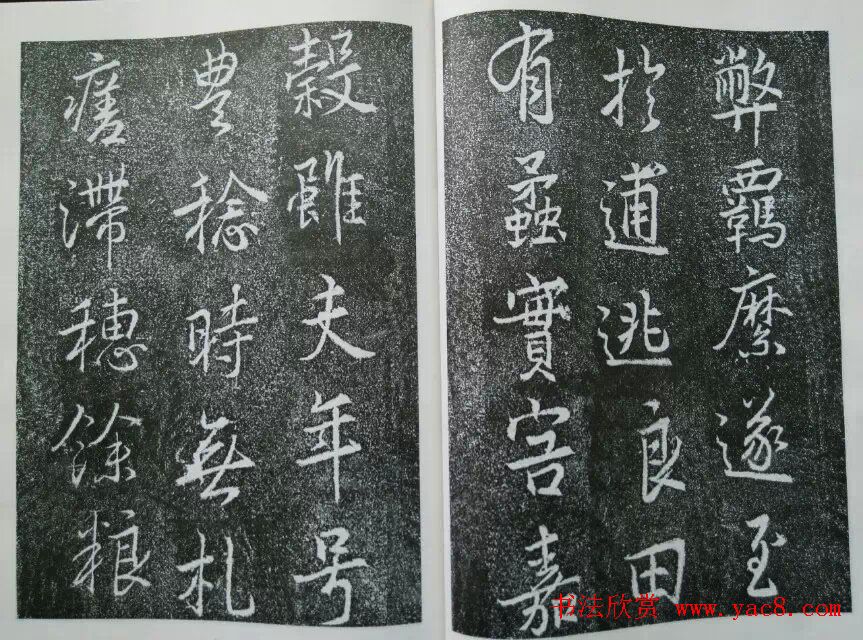 弊羈縻遂至
於逋逃良田
有蟊實害嘉
穀雖夫年号
豊稔時無札
瘥滯穗餘粮
书法欣赏 www.yac8.com